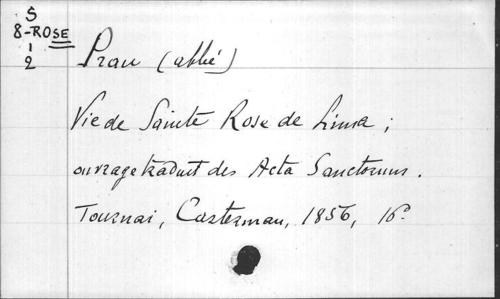 S
8-ROSE
1
2
Prau (abbé)
Vie de Sainte Rose de Lima ;
ouvrage traduit des Acta Sanctorum.
Tournai, Casterman, 1856, 16º